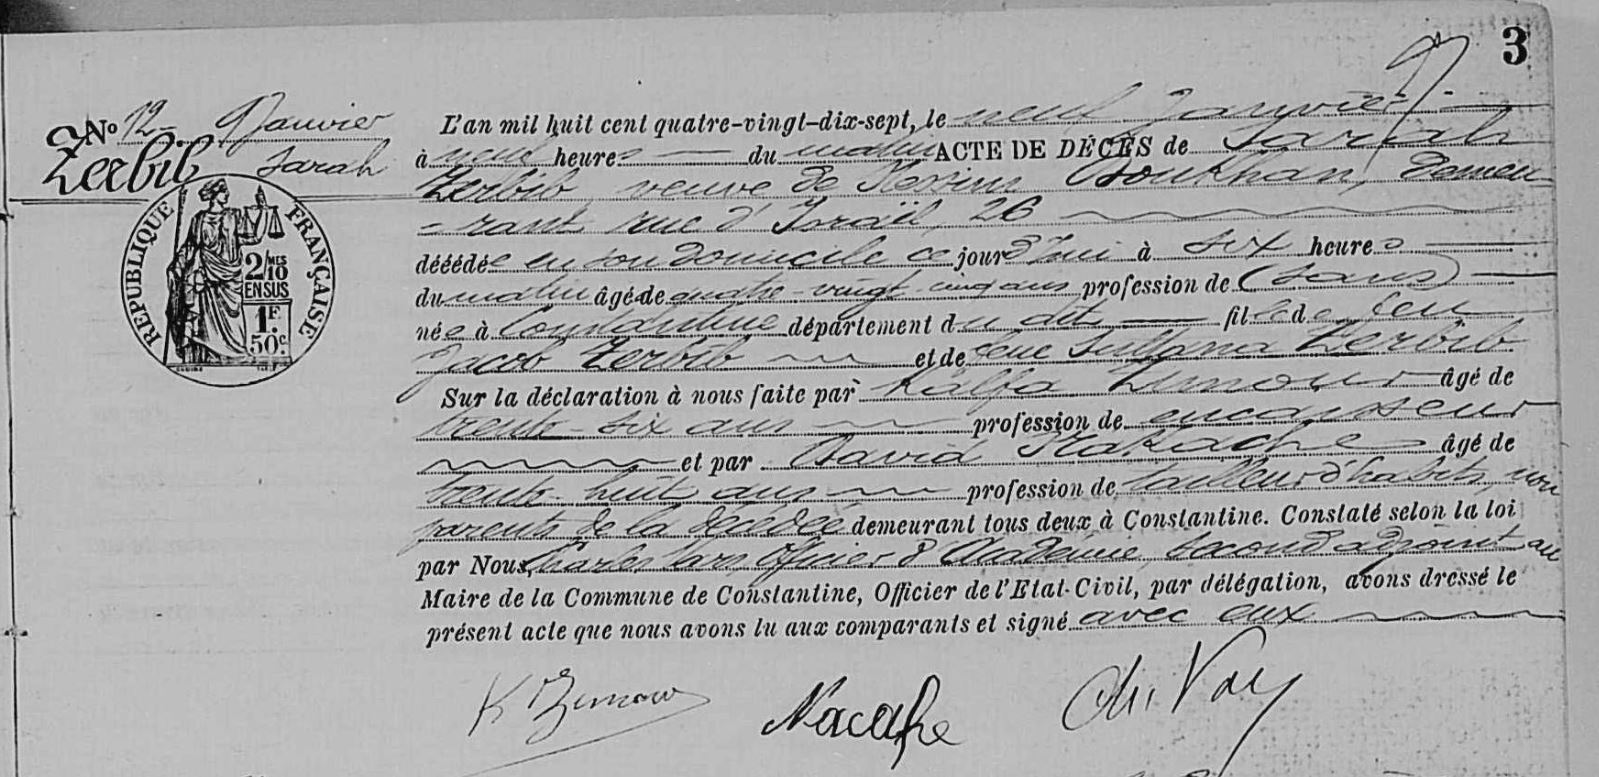 3
No 12 9 Janvier
Zerbib Sarah
RÉPUBLIQUE FRANÇAISE
2/10 MES
EN SUS
1F.
50c.
L'an mil huit cent quatre-vingt-dix-sept, le neuf Janvier
à neuf heures du matin ACTE DE DÉCÈS de Sarah
Zerbib, veuve de Nessim Doukhan, demeu
- rant rue d'Israël, 26
décédée en son domicile ce jourd'hui à six heures
du matin âgée de quatre-vingt cinq ans profession de (sans)
née à Constantine département du dit fille de feu
Jacob Zerbib et de feue Sultana Zerbib
Sur la déclaration à nous faite par Kalfa Zimour âgé de
trente-six ans profession de encaisseur
et par David Nakache âgé de
trente-huit ans profession de tailleur d'habits, non
parents de la décédée demeurant tous deux à Constantine. Constaté selon la loi
par Nous, Charles Vars officier d'Académie, second adjoint au
Maire de la Commune de Constantine, Officier de l'Etat-Civil, par délégation, avons dressé le
présent acte que nous avons lu aux comparants et signé avec eux
K Zimour Nacache Ch. Vars